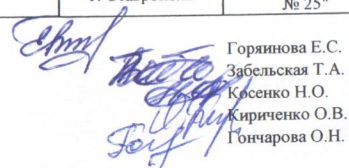 № 25"
Горяинова Е.С.
Забельская Т.А.
Косенко Н.О.
Кириченко О.В.
Гончарова О.Н.